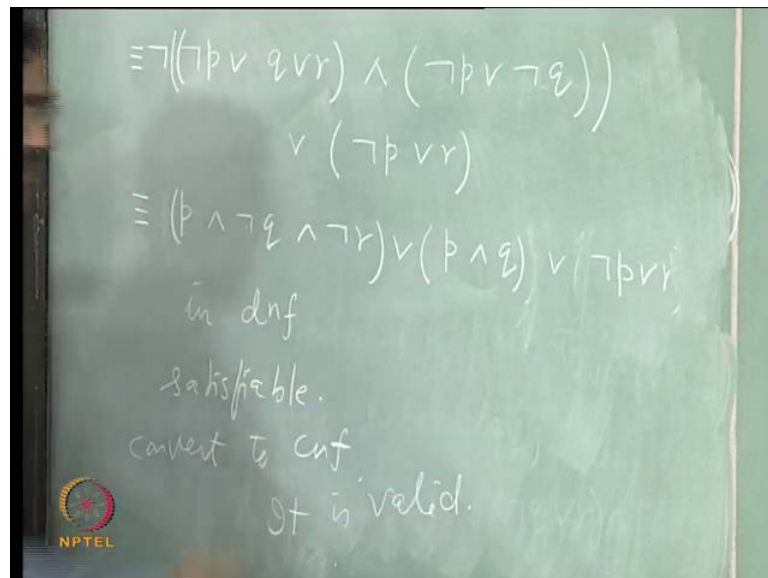 ≡¬((¬p∨ q∨r) ∧ (¬p∨ ¬q))
∨ (¬p ∨r)
≡ (p ∧ ¬q ∧ ¬r)∨(p ∧ q) ∨ ¬p∨r
in dnf
satisfiable.
convert to cnf
It is valid.
NPTEL